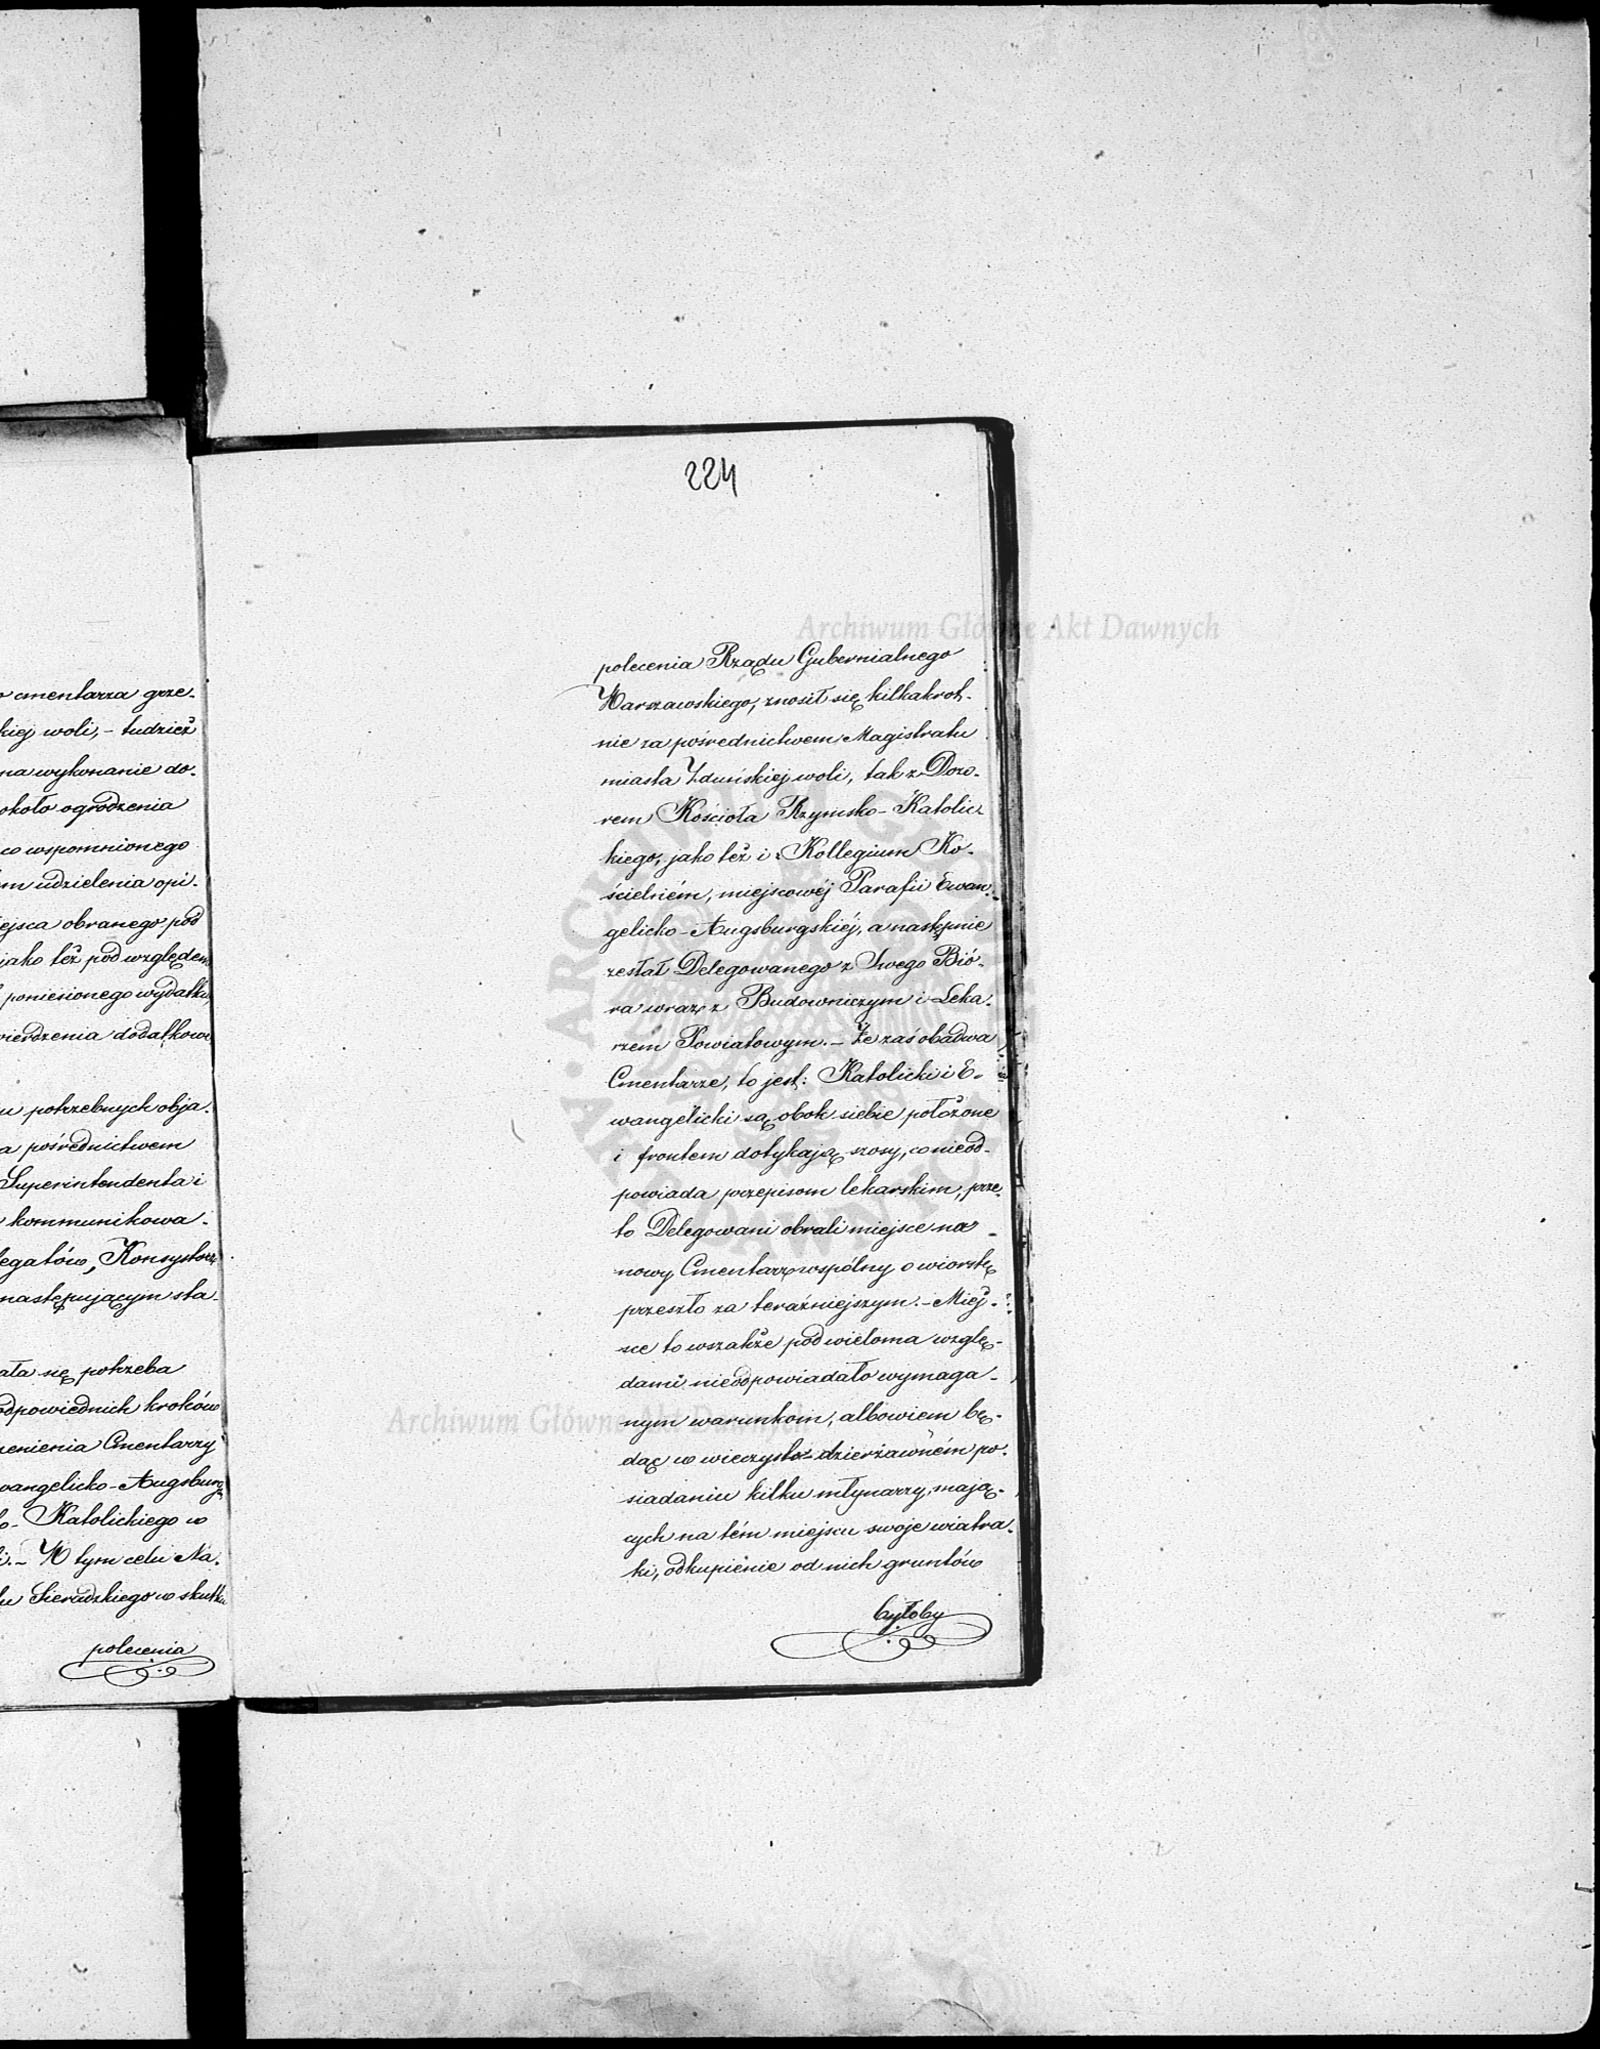 cmentarza grze-
kiej woli, - tudzież
na wykonanie do-
około ogrodzenia
co wspomnionego
m udzielenia opi-
ejsca obranego pod
jako też pod względem
poniesionego wydatku
wierdzenia dodatkowe
u potrzebnych obja-
a pośrednictwem
Superintendenta i
kommunikowa-
legatów, Konsystorz
następującym sta-
ała się potrzeba
odpowiednich kroków
ienienia Cmentarzy
wangelicko-Augsburg
o- Katolickiego w
i.- W tym celu Na-
u Sieradzkiego w skutku
polecenia
224
Archiwum Główne Akt Dawnych
polecenia Rządu Gubernialnego
Warszawskiego, znosił się kilkakrot-
nie za pośrednictwem Magistratu
miasta Zduńskiej woli, tak z Dozo-
rem Kościoła Rzymsko-Katolic-
kiego, jako też i z Kollegium Ko-
ścielném, miejscowéj Parafii Ewan-
gelicko-Augsburgskiéj, a następnie
zesłał Delegowanego z Swego Bió-
ra wraz z Budowniczym i Leka-
rzem Powiatowym.- Że zaś obadwa
Cmentarze, to jest: Katolicki i E-
wangelicki są obok siebie położone
i frontem dotykają szosy, co nieod-
powiada przepisom lekarskim, prze-
to Delegowani obrali miejsce na
nowy Cmentarz wspólny o wiorstę
przeszło za teraźniejszym.- Miej-
sce to wszakże pod wieloma wzglę-
dami nieodpowiadało wymaga-
nym warunkom, albowiem bę-
Archiwum Główne Akt Dawnych
dąc w wieczysto-dzierżawném po-
siadaniu kilku młynarzy, mają-
cych na tém miejscu swoje wiatra-
ki, odkupienie od nich gruntów
byłoby